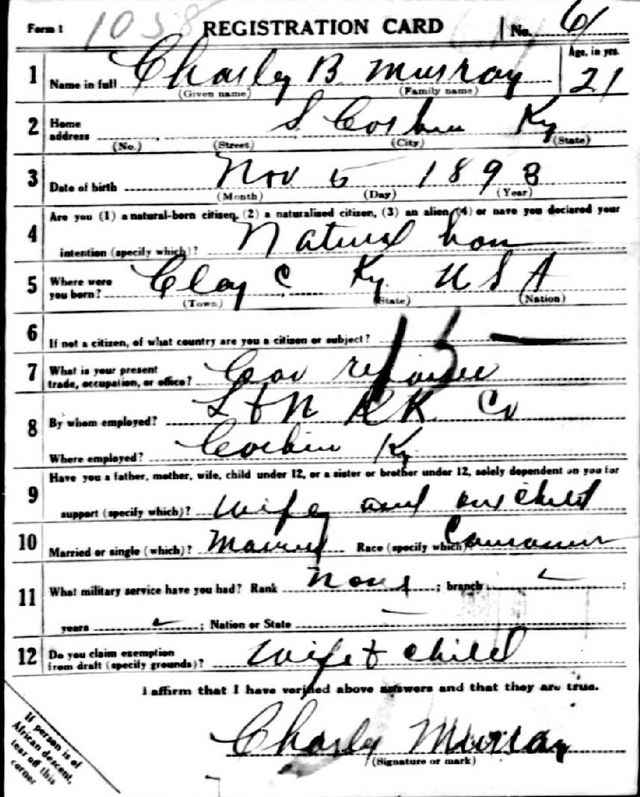 Form 1 1038 REGISTRATION CARD No. 6
Age, in yrs.
1 Name in full Charly B Murray 21
(Given name) (Family name)
2 Home address S Corbin Ky
(No.) (Street) (City) (State)
3 Date of birth Nov 5 1893
(Month) (Day) (Year)
Are you (1) a natural-born citizen, (2) a naturalized citizen, (3) an alien, (4) or have you declared your
4 intention (specify which)? Natural born
5 Where were you born? Clay C Ky U S A
(Town) (State) (Nation)
15 —
6 If not a citizen, of what country are you a citizen or subject?
7 What is your present trade, occupation, or office? Car repairer
8 By whom employed? L & N RR Co
Where employed? Corbin Ky
Have you a father, mother, wife, child under 12, or a sister or brother under 12, solely dependent on you for
9 support (specify which)? Wife and one child
10 Married or single (which)? Married Race (specify which)? Caucasian
11 What military service have you had? Rank None ; branch ;
years ; Nation or State
12 Do you claim exemption from draft (specify grounds)? Wife & child
I affirm that I have verified above answers and that they are true.
Charly Murray
(Signature or mark)
If person is of
African descent,
tear off this
corner